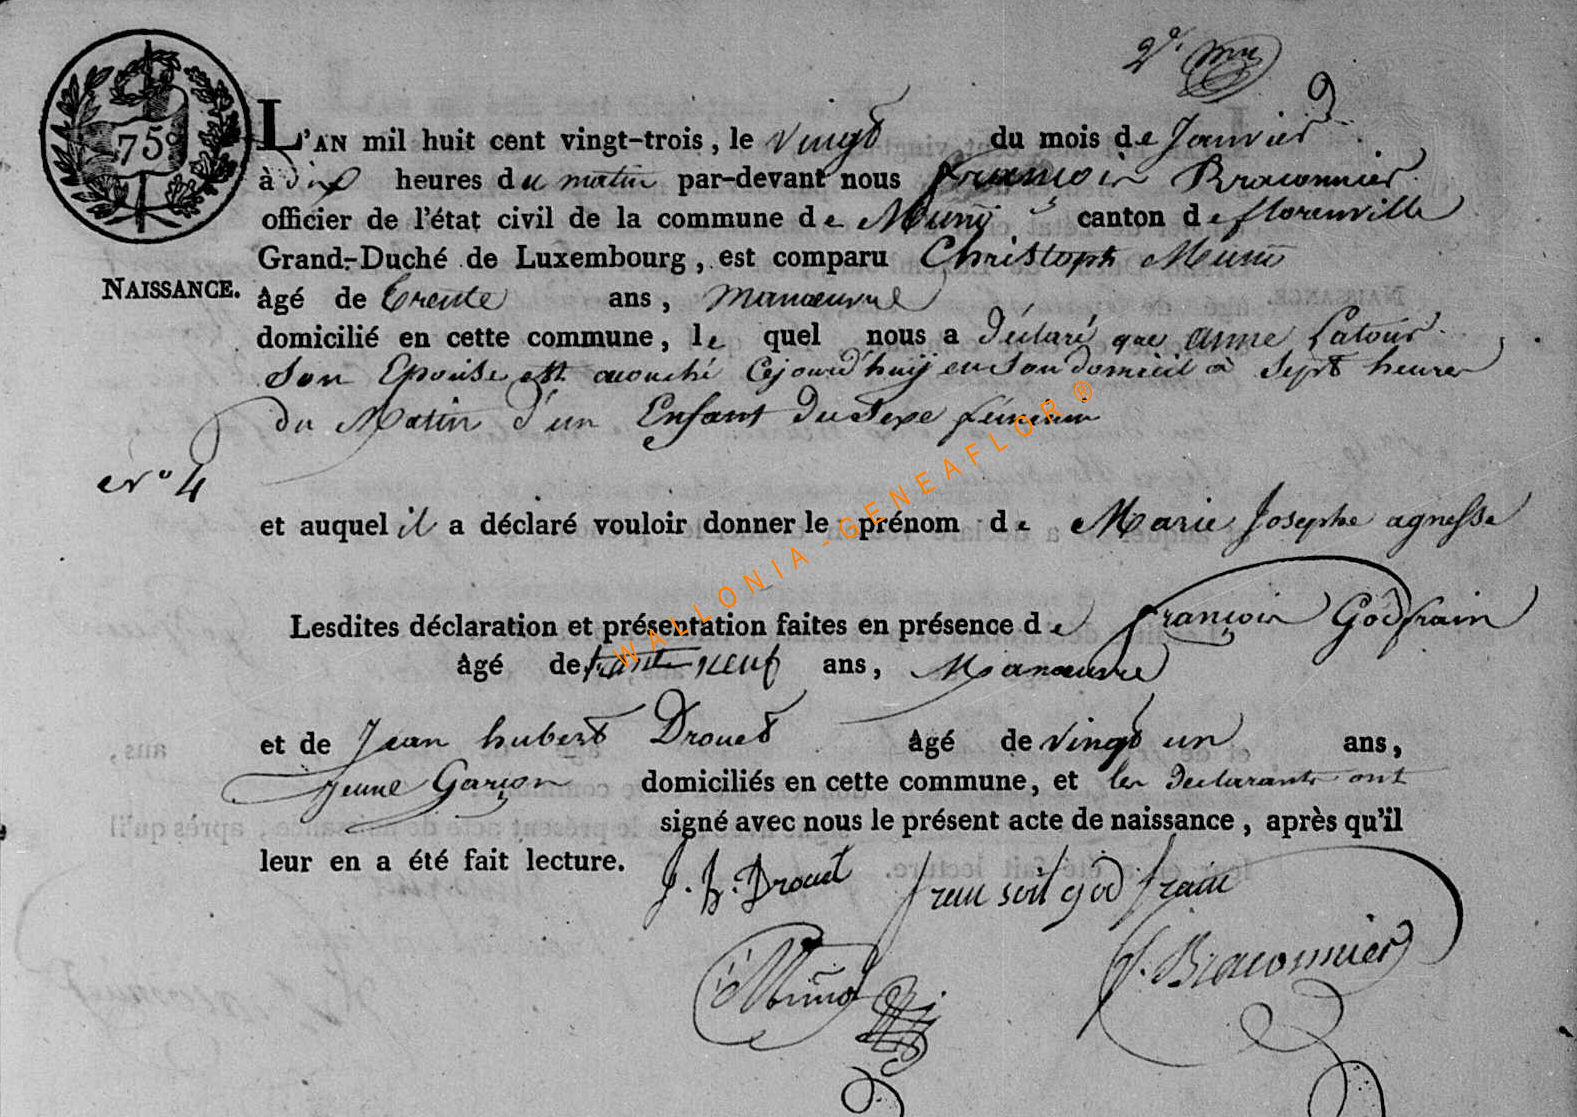 75
L'AN mil huit cent vingt-trois, le vingt du mois de Janvier
à dix heures du matin par-devant nous François Braconnier
officier de l'état civil de la commune de Muno canton de florenville
Grand-Duché de Luxembourg, est comparu Christoph
NAISSANCE.
âgé de trente ans, manœuvre
domicilié en cette commune, le quel nous a déclaré que anne Latour
Son Epouse est acouché Cejourd'huy en Son domicil à Sept heures
du Matin d'un Enfant du Sexe féminin
N° 4
et auquel il a déclaré vouloir donner le prénom de Marie Josephe agnesse
Lesdites déclaration et présentation faites en présence de françois Godfrain
âgé de trente neuf ans, Manœuvre
et de Jean hubert Drouet âgé de vingt un ans,
jeune Garçon domiciliés en cette commune, et les declarants ont
signé avec nous le présent acte de naissance, après qu'il
leur en a été fait lecture.
J. h. Drouet fren soit god frain
f. Braconnier
WALLONIA-GENEAFLOR®